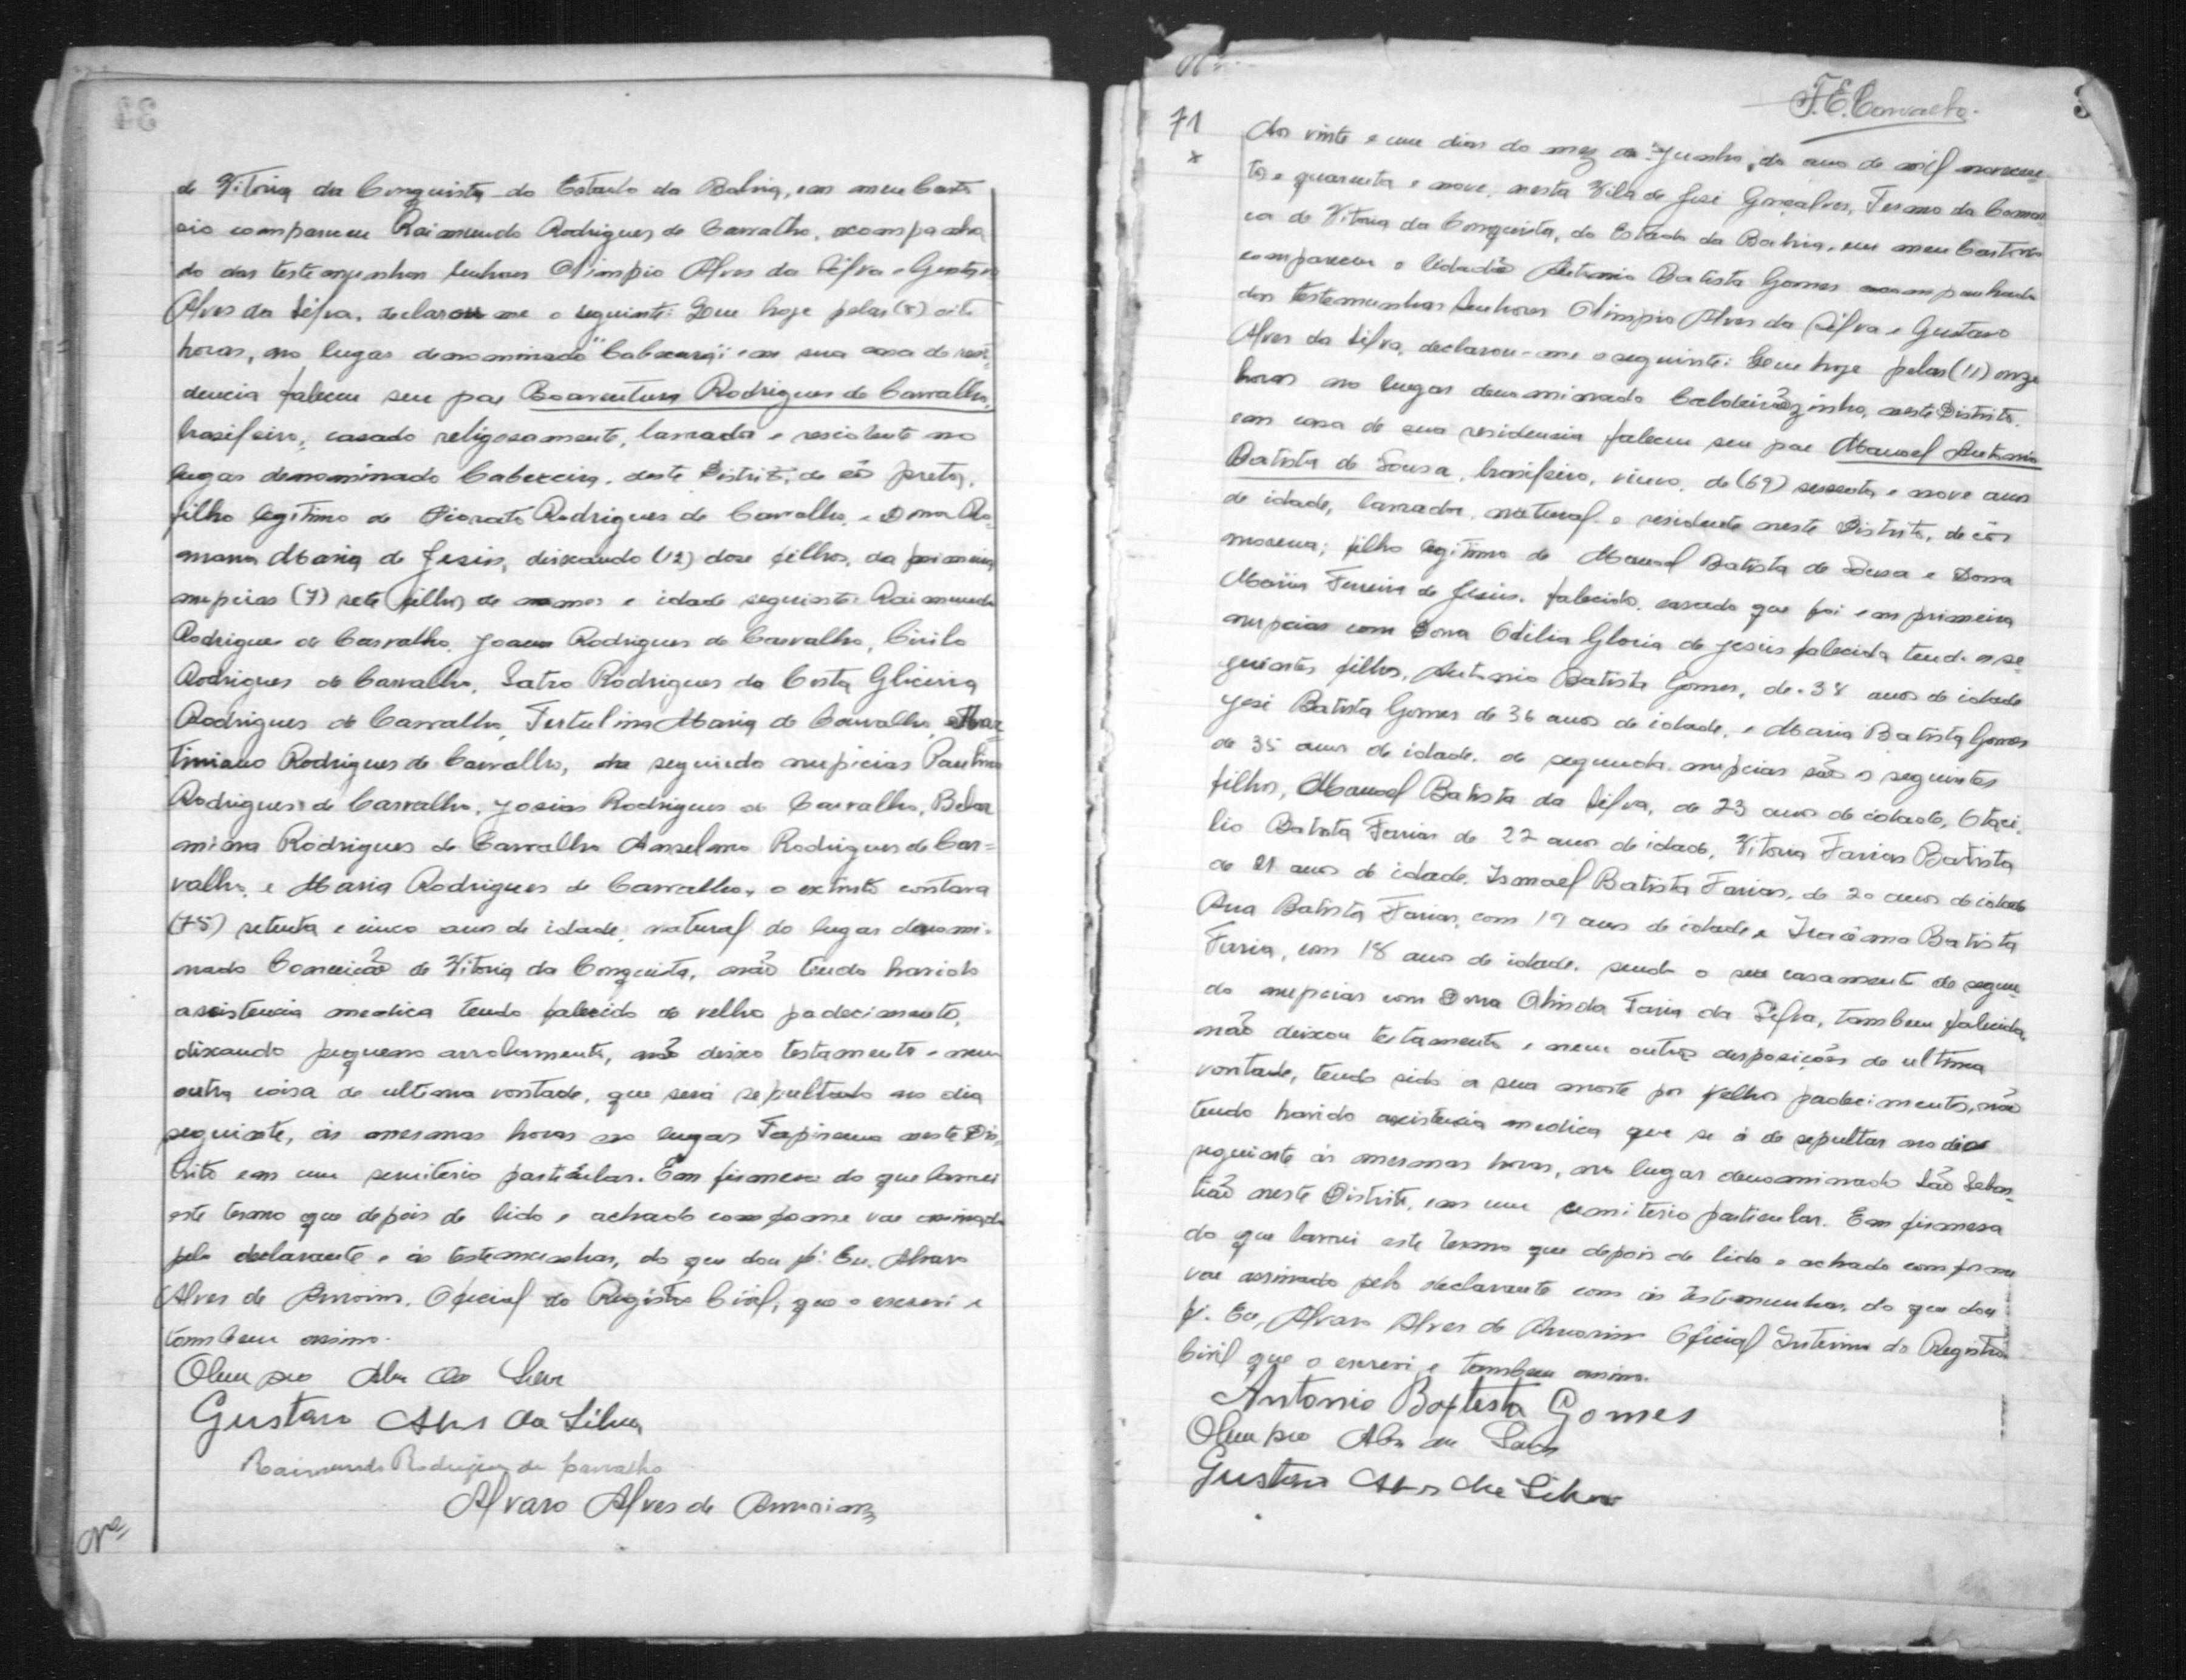 de Vitoria da Conquista do Estado da Bahia, em meu Carto
rio compareceu Raimundo Rodrigues de Carvalho, acompanha
do das testemunhas senhores Olimpio Alves da Silva e Gustavo
Alves da Silva, declarou me o seguinte: Que hoje pelas (8) oito
horas, no lugar denominado "Cabeceira" em sua casa de resi-
dencia faleceu seu pae Boaventura Rodrigues de Carvalho,
brasileiro, casado religosamente, lavrador e residente no
lugar denominado Cabeceira, deste Distrito, de côr preta,
filho legitimo de Rodrigues de Carvalho, e Dona Ro-
mana Maria de Jesus, deixando (12) dose filhos, da primeira
nupcias (7) sete filhos de nomes e idade seguinte: Raimundo
Rodrigues de Carvalho, Joana Rodrigues de Carvalho, Cirilo
Rodrigues de Carvalho, Satro Rodrigues da Costa Gliceria
Rodrigues de Carvalho, Tertulina Maria de Carvalho, Mar-
timiano Rodrigues de Carvalho, da segunda nupicias Paulino
Rodrigues de Carvalho, Josias Rodrigues de Carvalho, Belar
mina Rodrigues de Carvalho Anselmo Rodrigues de Car=
valho, e Maria Rodrigues de Carvalho, o extinto contava
(75) setenta e cinco anos de idade, natural do lugar denomi-
nado Conceição de Vitoria da Conquista, não tendo havido
assistencia medica tendo falecido de velho padecimento,
dixando pequeno arrolamento, não deixo testamento e nem
outra coisa de ultima vontade, que será sepultado no dia
seguinte, ás mesmas horas no lugar Tapirama neste Dis-
trito em um semiterio particular. Em firmesa do que lavrei
este termo que depois de lido e achado comforme vae assinado
pelo declarante e as testemunhas, do que dou fé. Eu, Alvaro
Alves de Amorim, Oficial do Registro Civil, que o escrevi e
tambem assino.
Olimpio Alves da Silva
Gustavo Alves da Silva
Raimundo Rodrigues de Carvalho
Alvaro Alves de Amorim
Nº
F. E. Carvalho.
71
Aos vinte e um dias do mez de Junho, do ano de mil novecen-
tos e quarenta e nove, nesta Vila de José Gonçalves, Termo da Comar
ca de Vitoria da Conquista, do Estado da Bahia, em meu Cartorio
compareceu o Cidadão Antonio Batista Gomes acompanhado
das testemunhas Senhores Olimpio Alves da Silva e Gustavo
Alves da Silva, declarou-me o seguinte: Que hoje pelas (11) onze
horas no lugar denominado Caldeirãozinho, neste Distrito,
em casa de sua residencia faleceu seu pae Manoel Antonio
Batista de Sousa, brasileiro, viuvo, de (69) sessenta e nove anos
de idade, lavrador, natural e residente neste Distrito, de côr
morena; filho legitimo de Manoel Batista de Sousa e Dona
Maria Ferreira de Jesus, falecido, casado que foi em primeira
nupcias com Dona Odilia Gloria de Jesus falecida tendo os se-
guintes filhos, Antonio Batista Gomes, de 38 anos de idade
José Batista Gomes de 36 anos de idade, e Maria Batista Gomes
de 35 anos de idade, de segunda nupcias são os seguintes
filhos, Manoel Batista da Silva, de 23 anos de idade, Otaci-
lio Batista Farias de 22 anos de idade, Vitoria Farias Batista
de 21 anos de idade, Ismael Batista Farias, de 20 anos de idade
Ana Batista Farias, com 19 anos de idade e Batista
Faria, com 18 anos de idade, sendo o seu casamento de segun-
da nupcias com Dona Olinda Faria da Silva, tambem falecida,
não deixou testamento e nem outras desposições de ultima
vontade, tendo sido a sua morte por velhos padecimentos, não
tendo havido assistencia medica que se á de sepultar no dia
seguinte ás mesmas horas, no lugar denominado São Sebas-
tião neste Distrito, em um cemiterio particular. Em firmesa
do que lavrei este termo que depois de lido e achado comforme
vae assinado pelo declarante com as testemunhas, do que dou
fé. Eu, Alvaro Alves de Amorim Oficial Interino do Registro
Civil que o escrevi e tambem assino.
Antonio Baptista Gomes
Olimpio Alves da Silva
Gustavo Alves da Silva